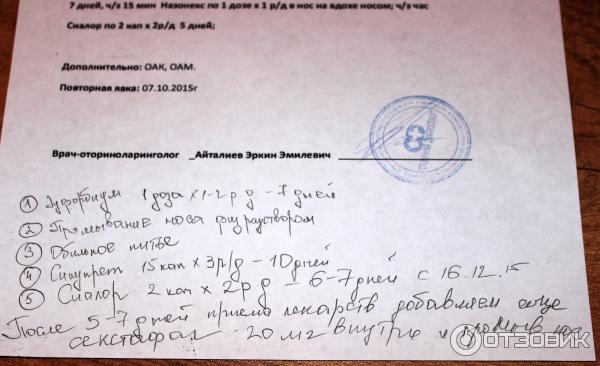 7 дней, ч/з 15 мин Назонекс по 1 дозе х 1 р/д в нос на вдохе носом; ч/з час
Сиалор по 2 кап х 2р/д 5 дней;
Дополнительно: ОАК, ОАМ.
Повторная явка: 07.10.2015г
Врач-оториноларинголог _Айталиев Эркин Эмилевич
① 1 доза х 1-2 р.д - 7 дней
② Промывание носа физраствором
③ Обильное питье
④ Синупрет 15 кап х 3 р/д - 10 дней
⑤ Сиалор 2 кап х 2 р д - 6-7 дней с 16.12.15
После 5-7 дней приема лекарств добавляем еще
20 мг внутрь и
ОТЗОВИК